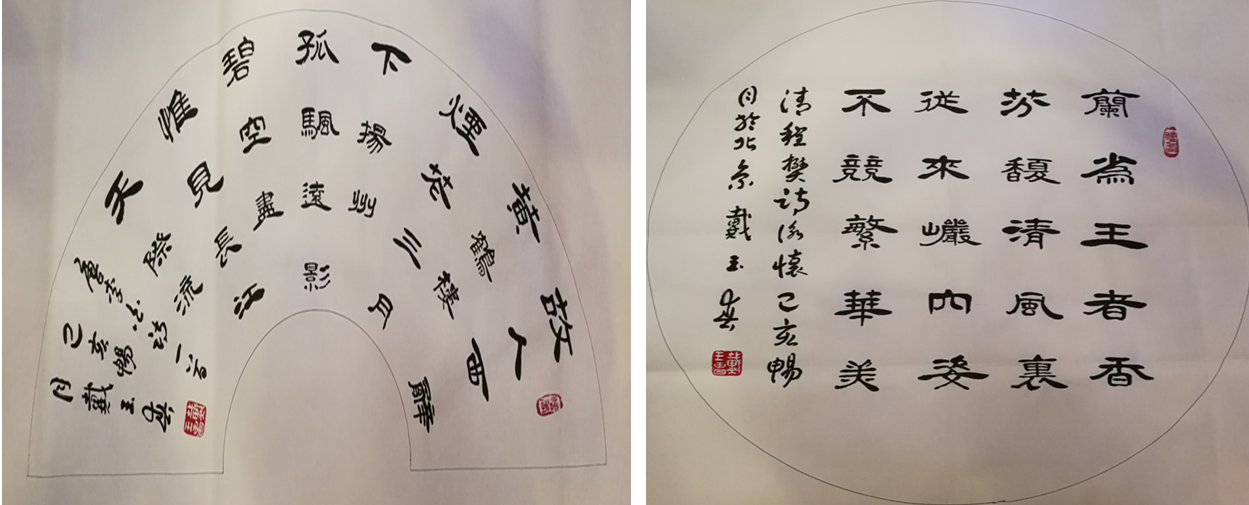 故人西辭
黃鶴樓
煙花三月
下揚州
孤颿遠影
碧空盡
惟見長江
天際流
唐李白詩一首
己亥暢
月戴玉
蘭為王者香
芬馥清風裏
従來巖内姿
不競繁華美
清程樊詩詠懷己亥暢
月於北京戴玉